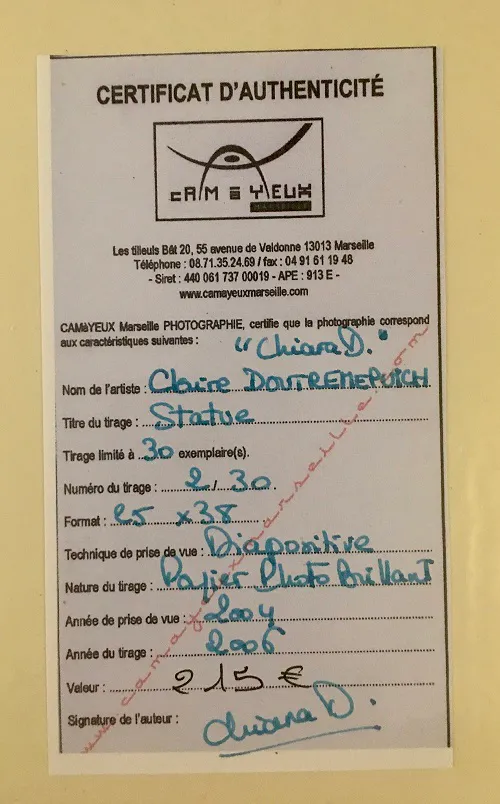 CERTIFICAT D'AUTHENTICITÉ
CAMAYEUX
MARSEILLE
Les tilleuls Bât 20, 55 avenue de Valdonne 13013 Marseille
Téléphone : 08.71.35.24.69 / fax : 04 91 61 19 48
- Siret : 440 061 737 00019 - APE : 913 E -
www.camayeuxmarseille.com
CAMàYEUX Marseille PHOTOGRAPHIE, certifie que la photographie correspond
aux caractéristiques suivantes : "Chiara D."
Nom de l'artiste : Claire DOUTREMEPUICH
Titre du tirage : Statue
Tirage limité à 30 exemplaire(s).
Numéro du tirage : 2/30
Format : 25 x 38
Technique de prise de vue : Diapositive
Nature du tirage : Papier Photo Brillant
Année de prise de vue : 2004
Année du tirage : 2006
Valeur : 215 €
Signature de l'auteur : Chiara D.
www.camayeuxmarseille.com